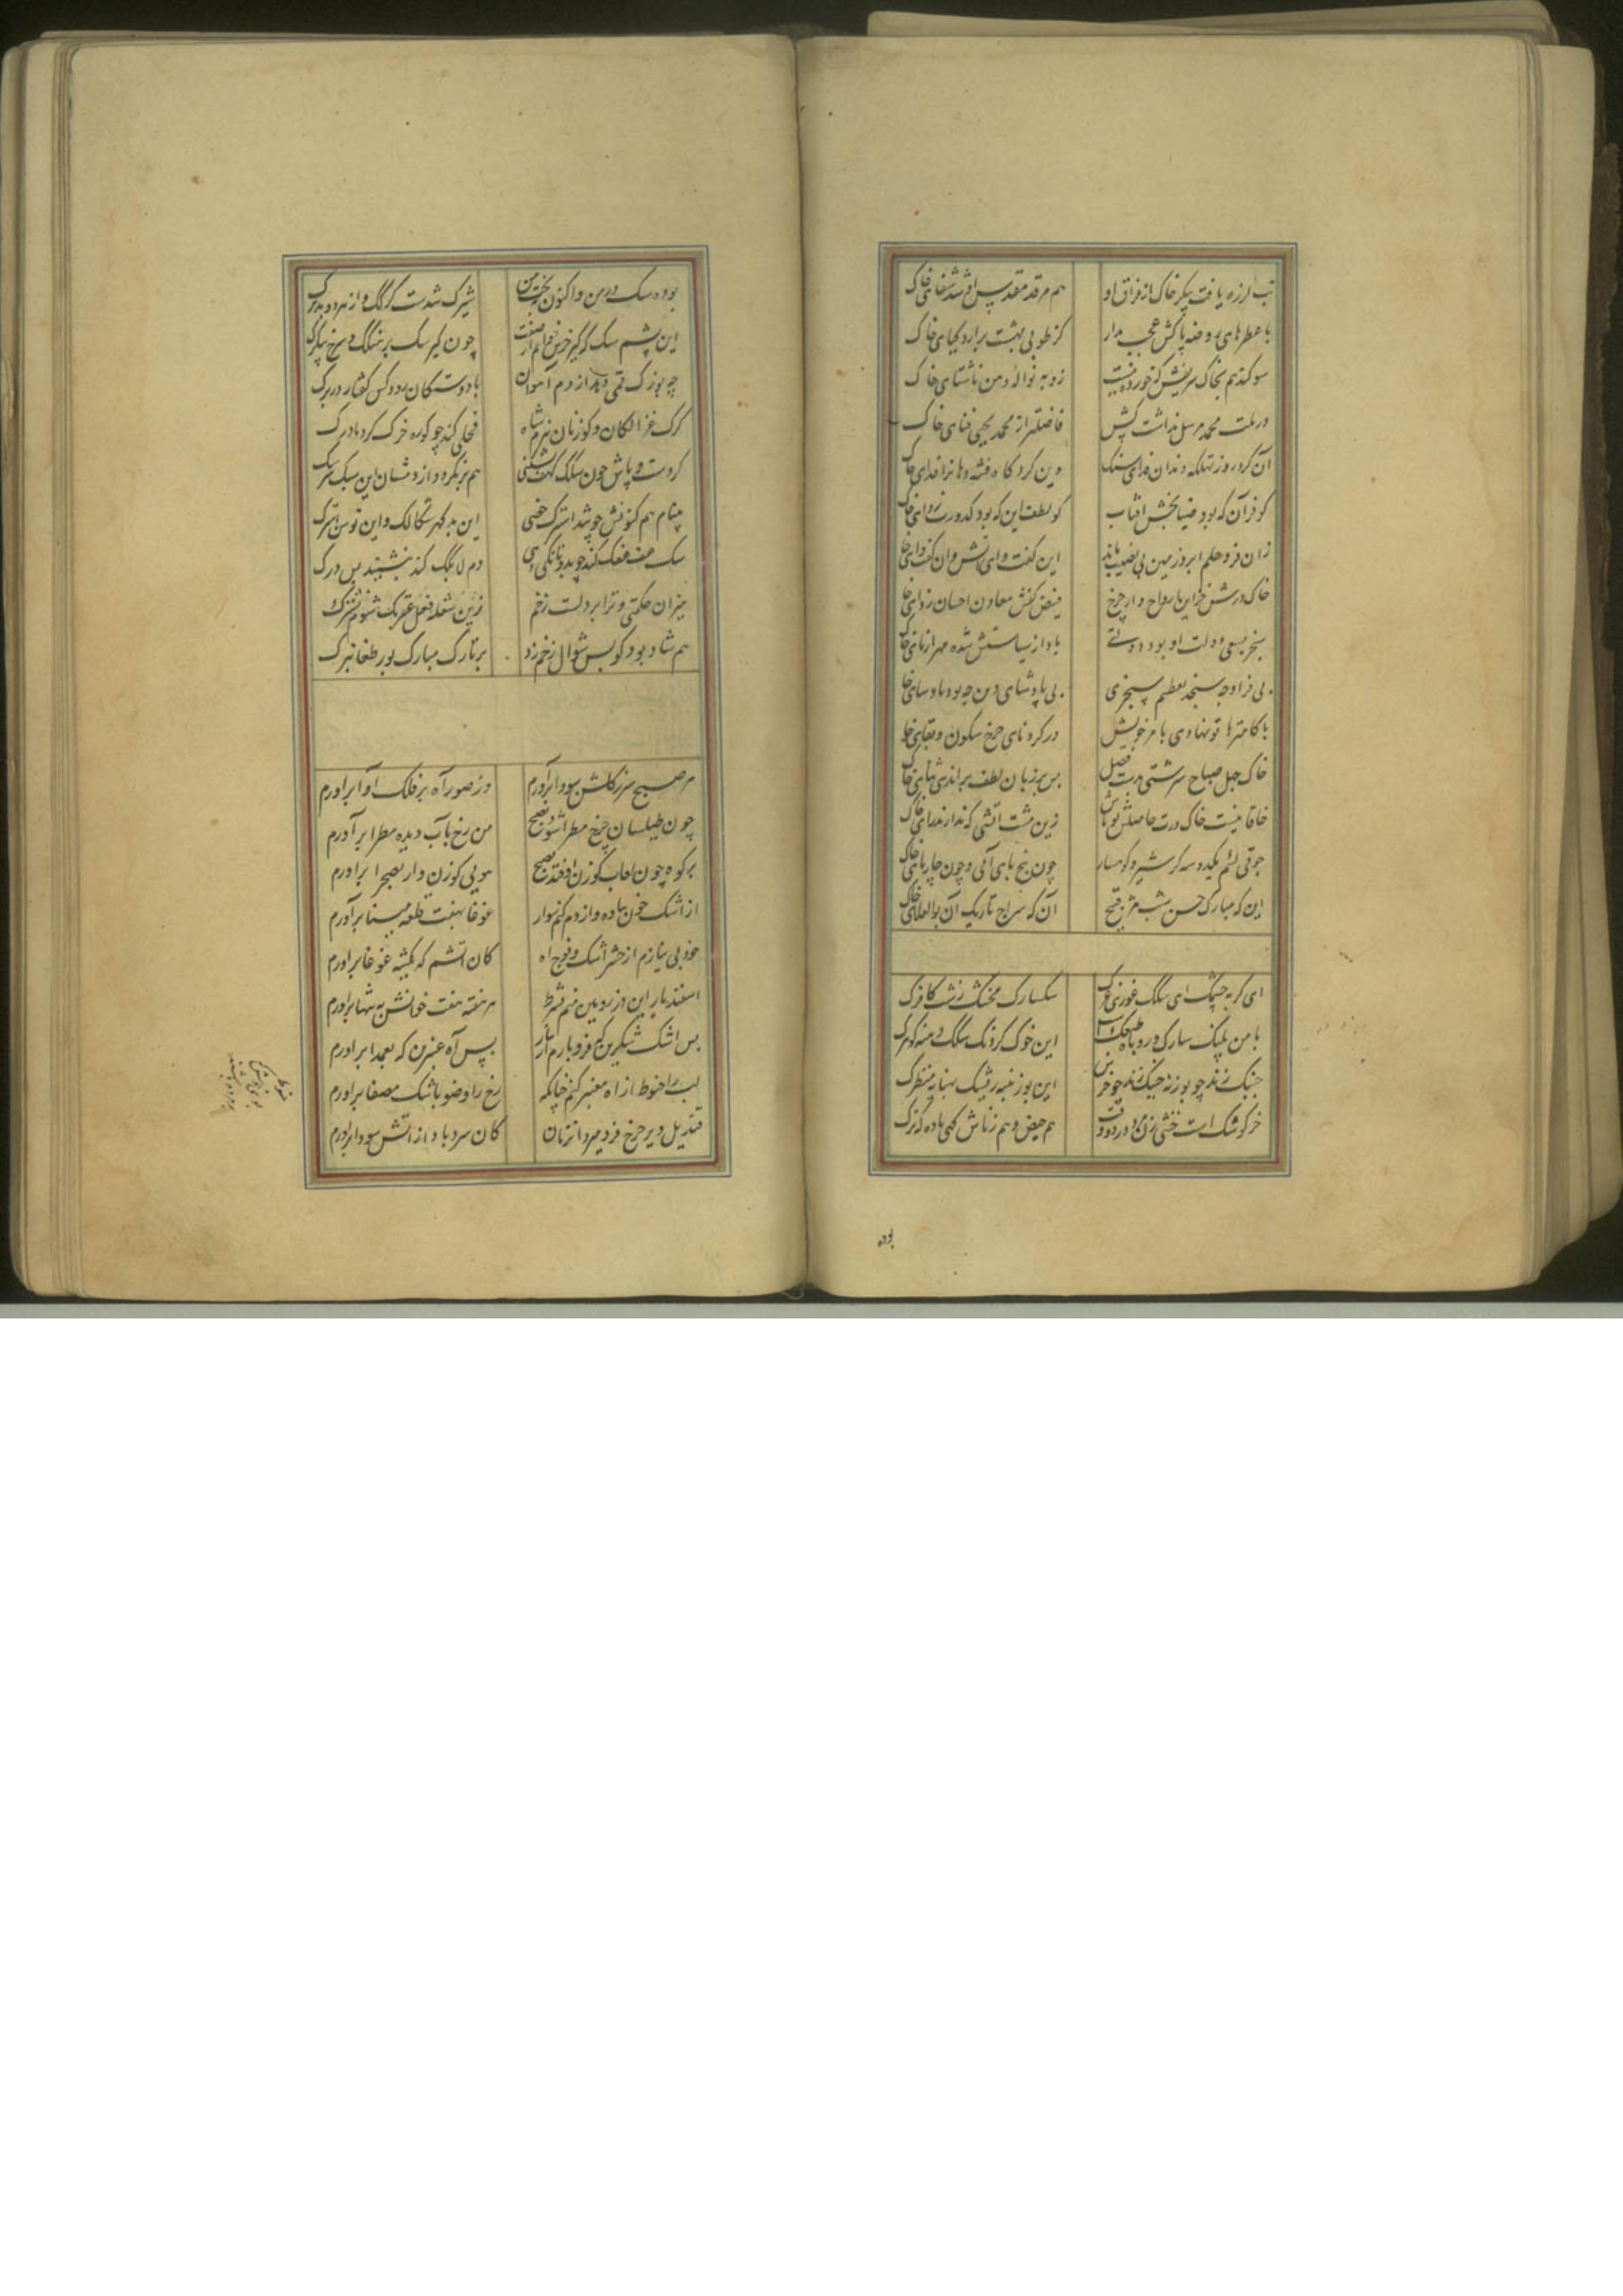 تب لرزه یافت پیکر خاک از فراق او هم مرقد مقدس او شد شفای خاک
با عطرهای روضه پاکش عجب مدار کز طوبی بهشت برآرد گیای خاک
سوکند هم بخاک شریفش که خورده نیست زو به نواله دهن ناشتای خاک
در ملت محمد مرسل نداشت کس فاضلتر از محمد یحیی فنای خاک
آن کرد روز تهلکه دندان فدای سنک وین کرد گاه فتنه دهان را فدای خاک
کو فر آن که بود ضیابخش آفتاب کو لطف این که بود کدورت زدای خاک
زان فر و حلم ابر و زمین بی نصیب ماند این گفت وای آتش و آن گفت وای خاک
خاک درش خزاین ارواح دان چرخ فیض کفش معادن احسان زدای خاک
سنجر بسعی دولت او بود دولتی باد از سیاستش شده مهر آزمای خاک
بی فر او چه سنجد تعظیم سنجری بی پادشاهی دین چه بود پادشای خاک
با کامتر ها تو نهادی بامر خویش در گرد نای چرخ سکون و بقای خاک
خاک چهل صباح سرشتی بدست فضل بس بر زبان لطف براندی ثنای خاک
خاقانیست خاک درت حافظش تو باش زین مشت آتشی که ندارند رای خاک
جوقی لئیم یکدو سه کژ سیر و کوهسار چون پنج پای آبی و چون چارپای خاک
این که مبارک حسن شب قبیح آن که سراج تاریک آن بوالعلای خاک
ای گربه چشمک ای سگک غوری غرک سگسارک مخنثک زشت کافرک
با من پلنگ سارک و روباه طبعک است این خوک گردنک سگک دمنه گوهرک
خنبک زند چو بوزنه چنبک زند چو خرس این بوزنینه ریشک پهنانه منظرک
خرگوشک است خنثی زن و مرد در دو وقت هم حیض و هم زناش گهی ماده گه نرک
بوده
بوده سگ در من و اکنون بخت من شیرک شدست گرگک و از هر دو بدترک
این پشم سگ چون گیر سگ برهنگک و سرخ پیکرک
چو یوزک از دم آهوان با دوستکان
کرک غزالکان و گوزنان بزم شاه فحلی کند چو گوره خرک گرد مادرک
گر دست و پاش چون سگک کهف بشکنی هم برنگردد از دمشان این سبک سرک
هم کنونش چو شد استرک خصی این بد گهر شگالک و این توسن استرک
سگ عفعفک کند چو بدو نانکی دهی دم لابگک کند بنشیند پس درک
میزان حکمتی و ترا بر دلست زخم زین شعله فعل عقربک شوم
هم شاد بود کو پس شوال زخم زد بر تارک مبارک پور طغانبرک
هر صبح سر ز گلشن سودا برآورم وز صور آه بر فلک آوا برآورم
چون طیلسان چرخ مطرا شود بصبح من رخ بآب دیده مطرا برآورم
بر کوه چون لعاب گوزن اوفتد بصبح هویی گوزن وار بصحرا برآورم
از اشک خون پیاده و از دم کنم سوار غوغا بهفت قلعه مینا برآورم
خود بی نیازم از حشر اشک و فوج آه کان آتشم که یکتنه غوغا برآورم
اسفندیار این دز رویین منم بشرط هر هفته هفت خوانش به تنها برآورم
بس اشک شکرین که فرو بارم از نیاز بس آه عنبرین که بعمدا برآورم
لب را حنوط از آه معنبر کنم چنانکه رخ را وضو باشک مصفا برآورم
قندیل دیر چرخ فرو میرد آنزمان کان سرد باد از آتش سودا برآورم